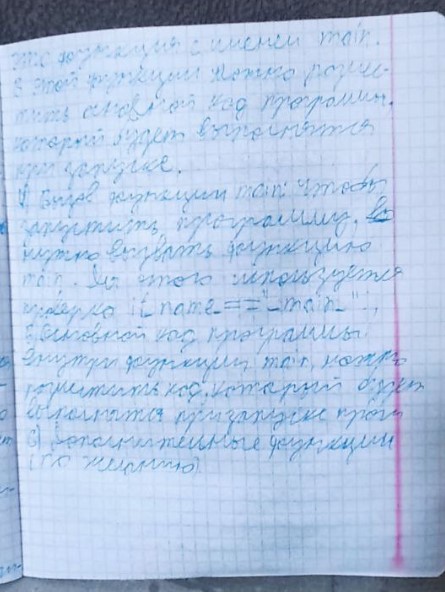 это функция с именем main.
В этой функции можно разме-
тить основной код программы,
который будет выполнятся
при запуске.
4) Вызов функции main: чтобы
запустить программу,
нужно вызвать функцию
main. Для этого используется
проверка if_name_=="_main_":,
5) Основной код программы:
внутри функции main, можно
разметить код, который будет
выполнятся при запуске прогр
6) Дополнительные функции
(по желанию)